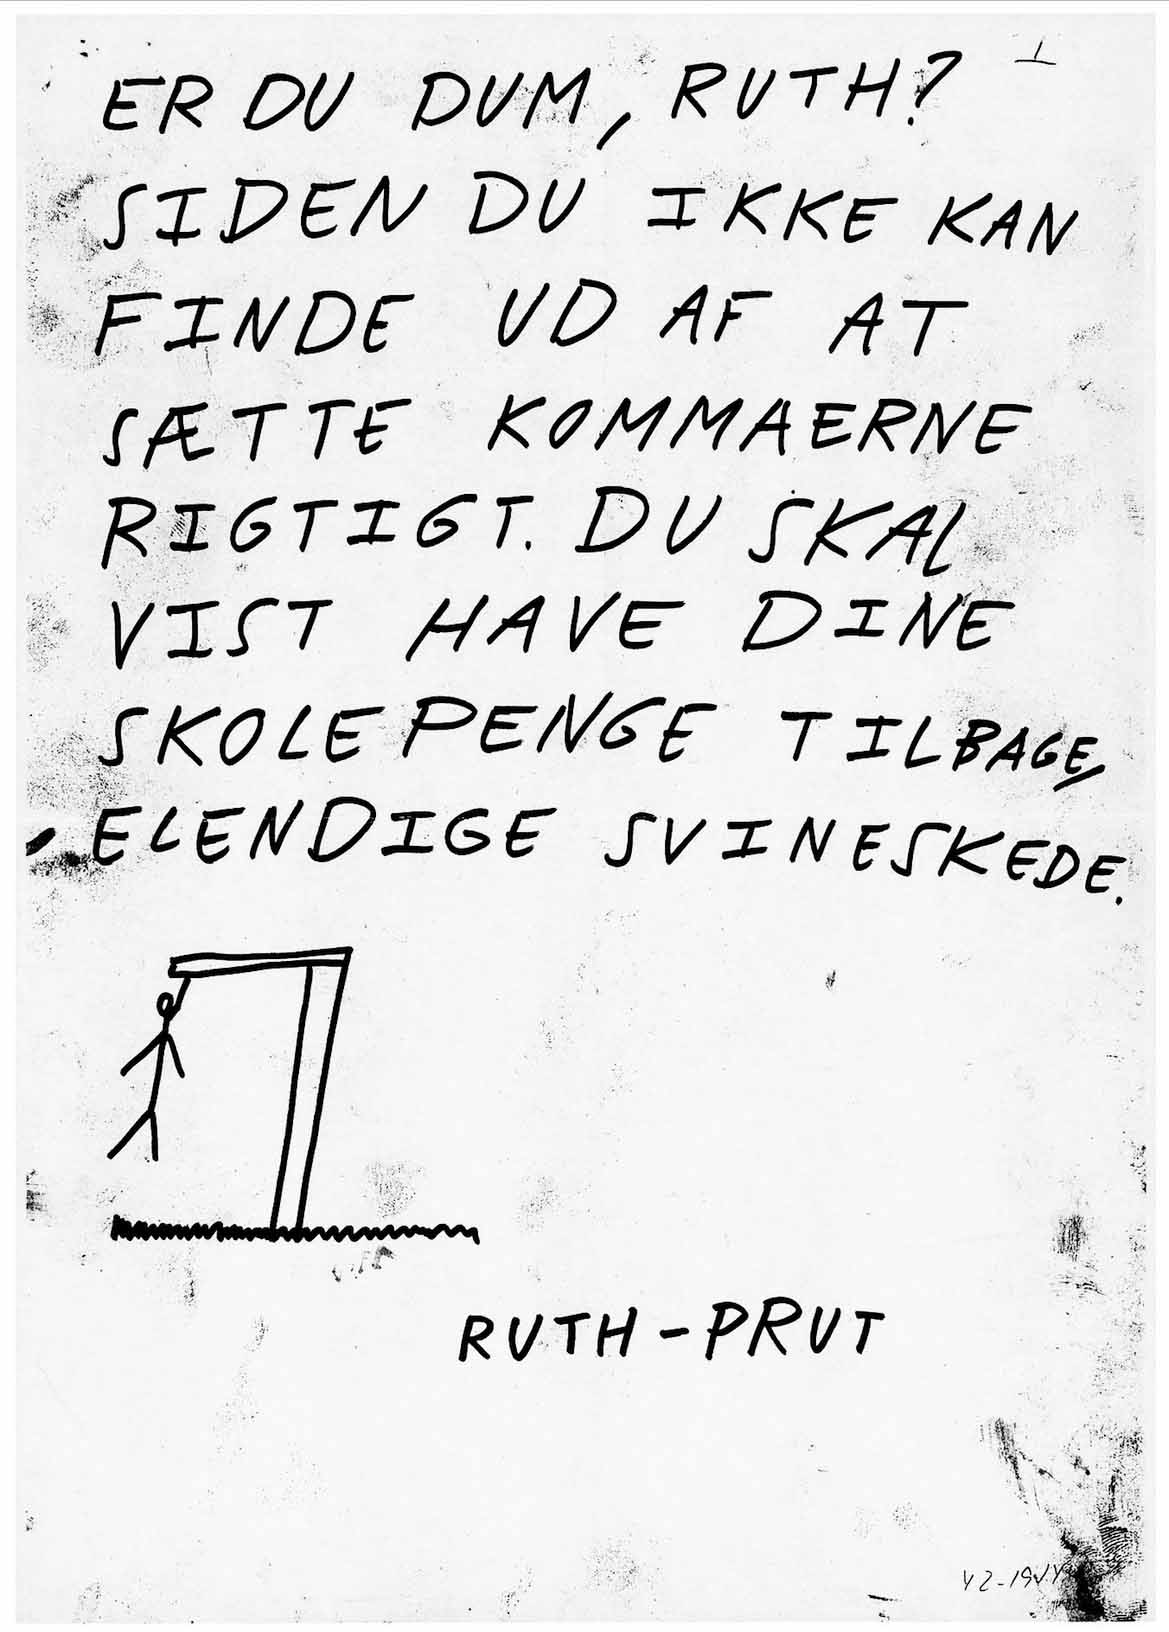 ER DU DUM, RUTH?
SIDEN DU IKKE KAN
FINDE UD AF AT
SÆTTE KOMMAERNE
RIGTIGT. DU SKAL
VIST HAVE DINE
SKOLEPENGE TILBAGE,
ELENDIGE SVINESKEDE.
RUTH-PRUT